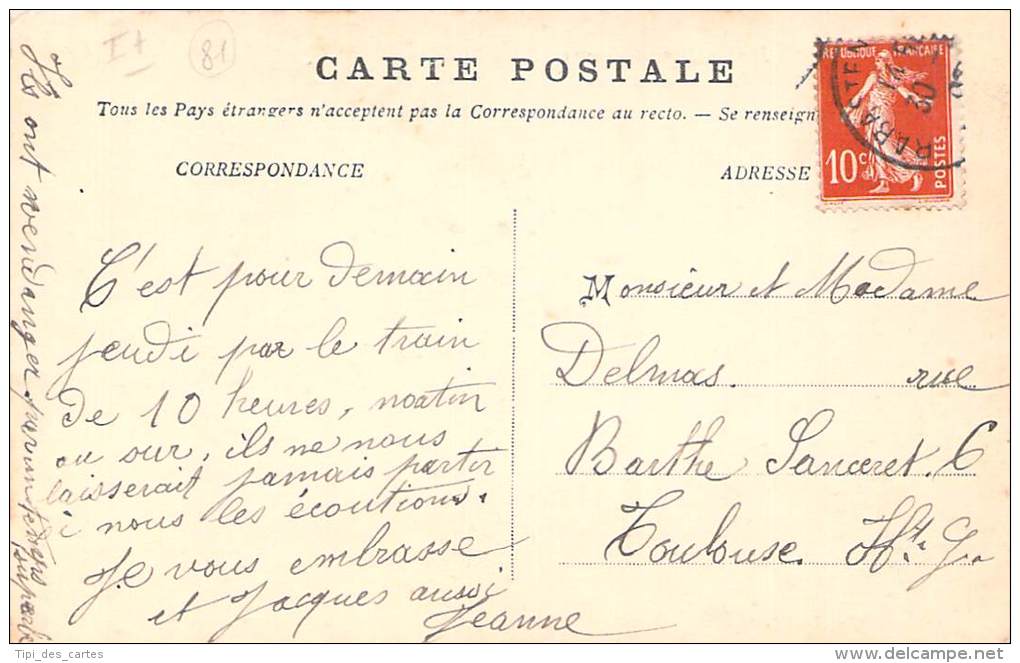 I+ 81
CARTE POSTALE
Tous les Pays étrangers n'acceptent pas la Correspondance au recto. — Se renseign
CORRESPONDANCE
ADRESSE
REPUBLIQUE FRANÇAISE
10 c
POSTES
RABASTE
30
C'est pour demain
jeudi par le train
de 10 heures, matin
ou sur, ils ne nous
laisserait jamais partir
si nous les écoutions.
Je vous embrasse
et Jacques aussi
Jeanne
Ils ont vendanger par un temps
superbe
Monsieur et Madame
Delmas. rue
Barthe Sanceret. 6
Toulouse. Hte Gne
Tipi_des_cartes
www.delcampe.net